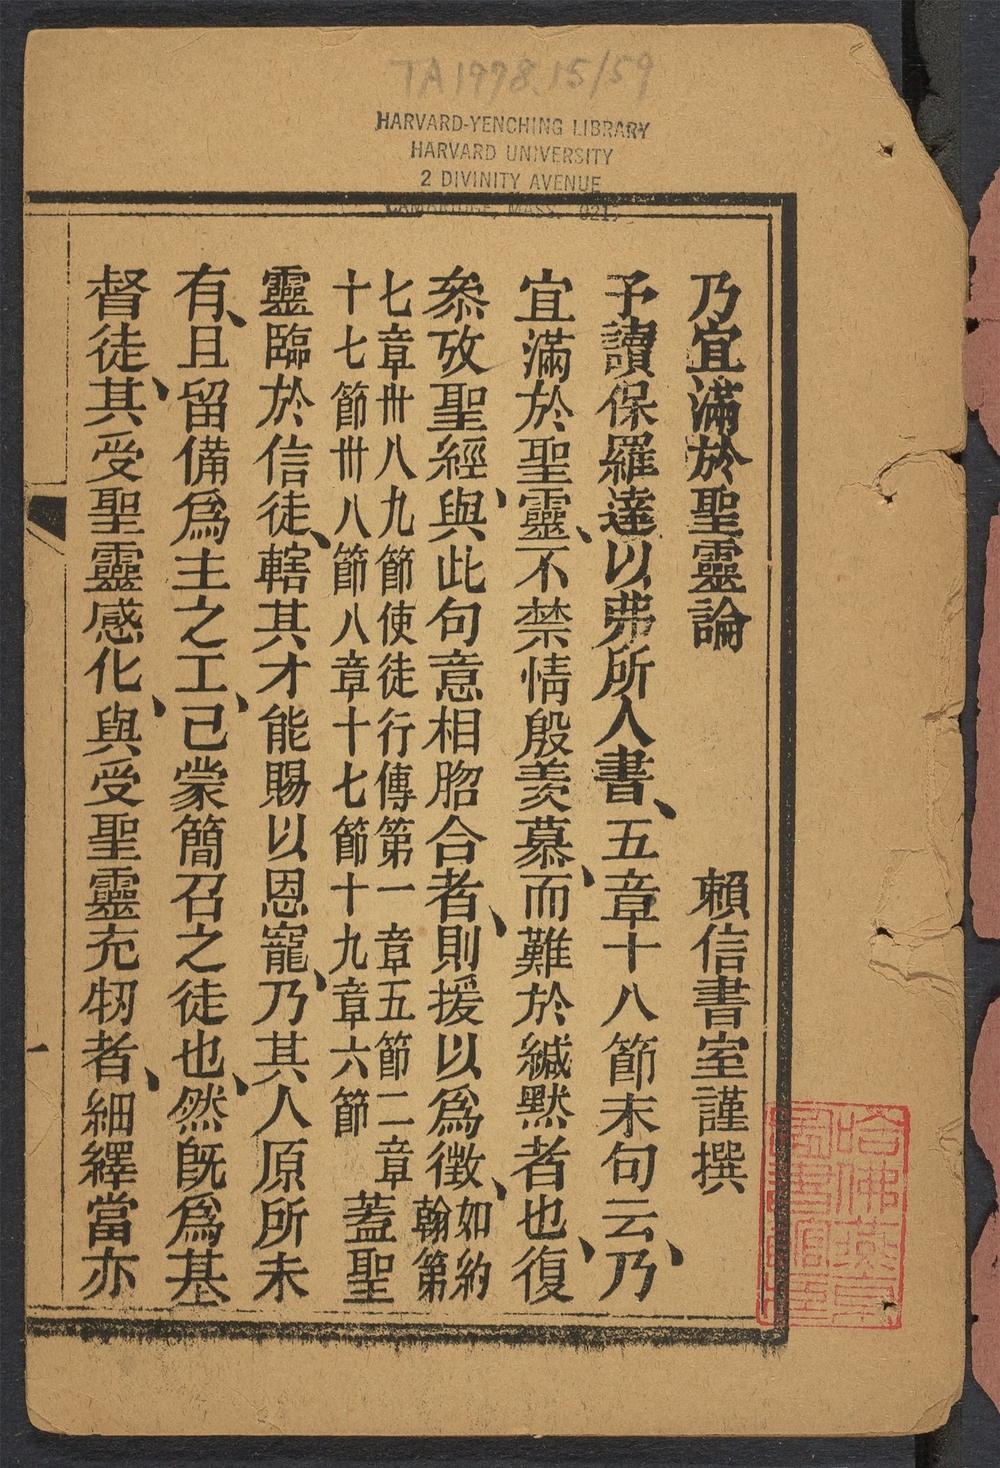 TA 1978.15/59
HARVARD-YENCHING LIBRARY
HARVARD UNIVERSITY
2 DIVINITY AVENUE
CAMBRIDGE, MASS. 021
乃宜滿於聖靈論 賴信書室謹撰
予讀保羅達以弗所人書、五章十八節末句云、乃
宜滿於聖靈、不禁情殷羨慕、而難於緘默者也、復
叅攷聖經、與此句意相脗合者、則援以爲徵、如約
翰第
七章卅八九節使徒行傳第一章五節二章
十七節卅八節八章十七節十九章六節
蓋聖
靈臨於信徒、轄其才能賜以恩寵、乃其人原所未
有、且留備爲主之工、已蒙簡召之徒也、然旣爲基
督徒、其受聖靈感化、與受聖靈充牣者、細繹當亦
哈佛燕京
圖書館